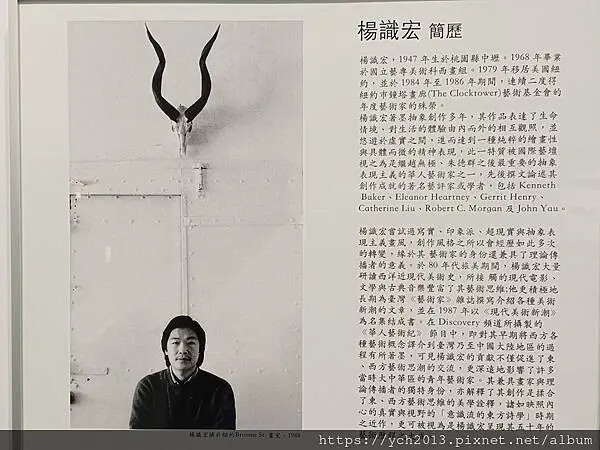 楊識宏 簡歷
楊識宏，1947 年生於桃園縣中壢。1968 年畢業
於國立藝專美術科西畫組。1979 年移居美國紐
約，並於 1984 年至 1986 年期間，連續二度得
紐約市鐘塔畫廊(The Clocktower)藝術基金會的
年度藝術家的殊榮。
楊識宏著墨抽象創作多年，其作品表達了生命
情境、對生活的體驗由內而外的相互觀照，並
悠遊於虛實之間，進而達到一種純粹的繪畫性
與具體而微的精神表現，此一特質被國際藝壇
視之為是繼趙無極、朱德群之後最重要的抽象
表現主義的華人藝術家之一，先後撰文論述其
創作成就的著名藝評家或學者，包括 Kenneth
Baker、Eleanor Heartney、Gerrit Henry、
Catherine Liu、Robert C. Morgan 及 John Yau。
楊識宏嘗試過寫實、印象派、超現實與抽象表
現主義畫風，創作風格之所以會經歷如此多次
的轉變，緣於其 藝術家的身份還兼具了理論傳
播者的意義。於 80 年代旅美期間，楊識宏大量
研讀西洋近現代美術史，所接 觸的現代電影、
文學與古典音樂豐富了其藝術思維;他更積極地
長期為臺灣《藝術家》雜誌撰寫介紹各種美術
新潮的文章，並在 1987 年以《現代美術新潮》
為名集結成書。在 Discovery 頻道所攝製的
《華人藝術紀》 節目中，即對其早期將西方各
種藝術概念譯介到臺灣乃至中國大陸地區的過
程有所著墨，可見楊識宏的貢獻不僅促進了東
、西方藝術思潮的交流，更深遠地影響了許多
當時大中華區的青年藝術家。其兼具畫家與理
論傳播者的獨特身份，亦解釋了其創作是揉合
了東、西方藝術思維的美學詮釋，諸如映照內
心的真實與視野的「意識流的東方詩學」時期
之近作，更可被視為是楊識宏呈現其五十年的
楊識宏攝於紐約Broome St. 畫室，1988
https://ych2013.pixnet.net/album